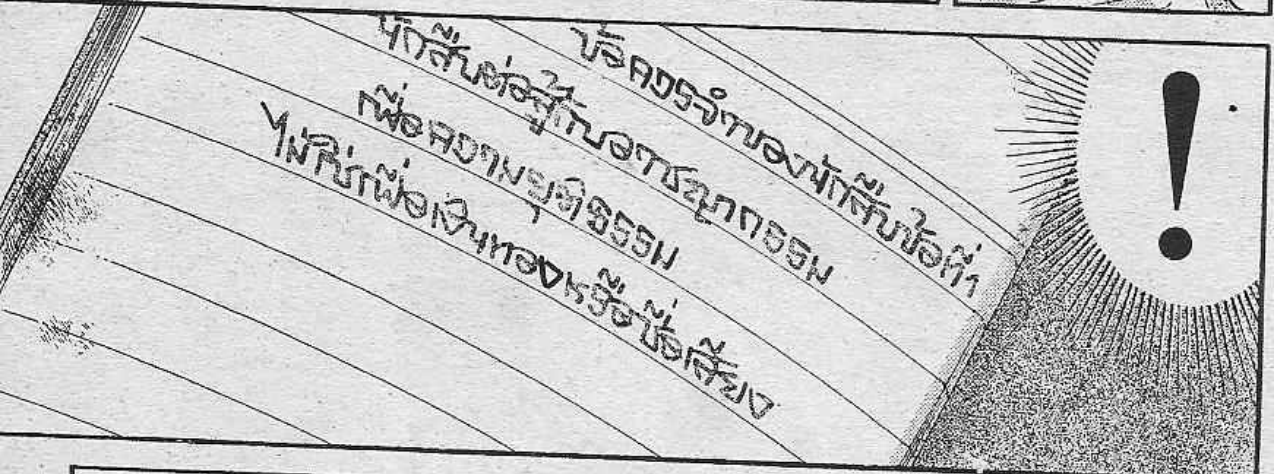 ข้อควรจำของนักสืบข้อที่1
นักสืบต่อสู้กับอาชญากรรม
เพื่อความยุติธรรม
ไม่ใช่เพื่อเงินทองหรือชื่อเสียง
!